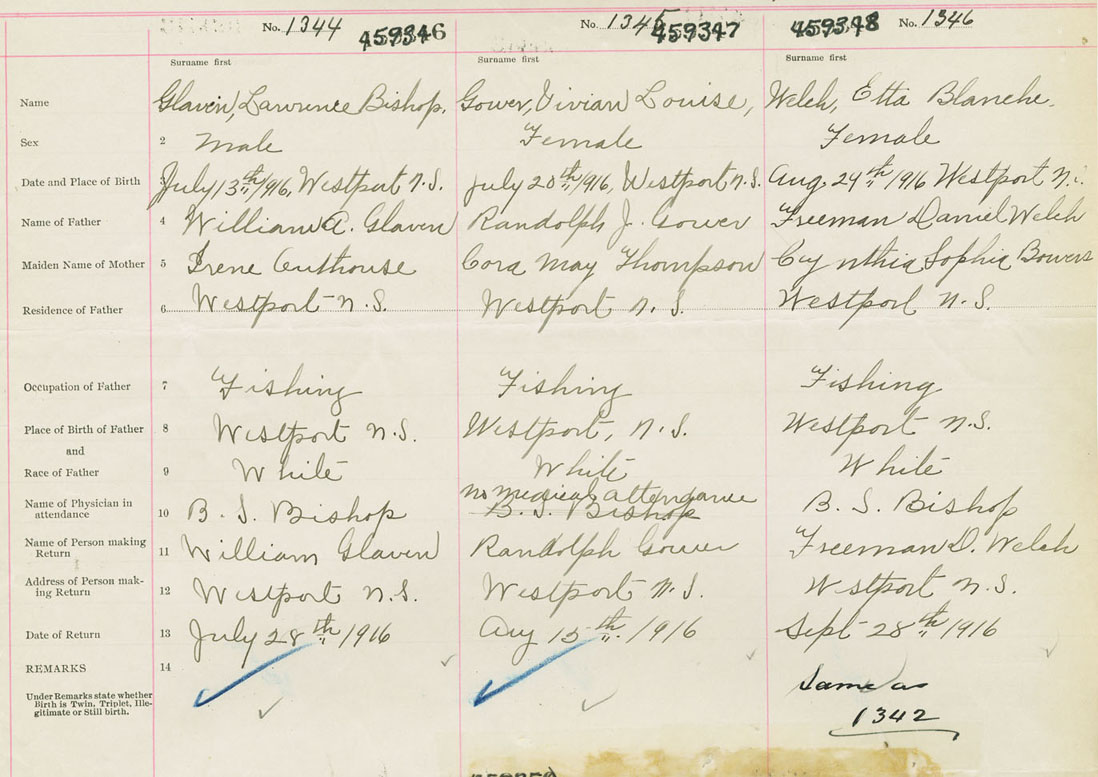 No. 1344 459346 No. 1345 459347 459348 No. 1346
Surname first Surname first Surname first
Name Glaven, Lawrence Bishop. Gower, Vivian Louise, Welch, Etta Blanche.
Sex 2 Male Female Female
Date and Place of Birth July 13th/1916, Westport N.S. July 20th/1916, Westport N.S. Aug. 29th/1916 Westport N.S.
Name of Father 4 William A. Glaven Randolph J. Gower Freeman Daniel Welch
Maiden Name of Mother 5 Irene Outhouse Cora May Thompson Cynthia Sophia Bowers
Residence of Father 6 Westport N.S. Westport N.S. Westport N.S.
Occupation of Father 7 Fishing Fishing Fishing
Place of Birth of Father 8 Westport N.S. Westport, N.S. Westport N.S.
and
Race of Father 9 White White White
no medical attendance
Name of Physician in
attendance 10 B. S. Bishop B. S. Bishop B. S. Bishop
Name of Person making
Return 11 William Glaven Randolph Gower Freeman D. Welch
Address of Person mak-
ing Return 12 Westport N.S. Westport N.S. Westport N.S.
Date of Return 13 July 28th/1916 Aug 15th/1916 Sept 28th/1916
REMARKS 14
Under Remarks state whether
Birth is Twin, Triplet, Ille-
gitimate or Still birth.
Same as
1342